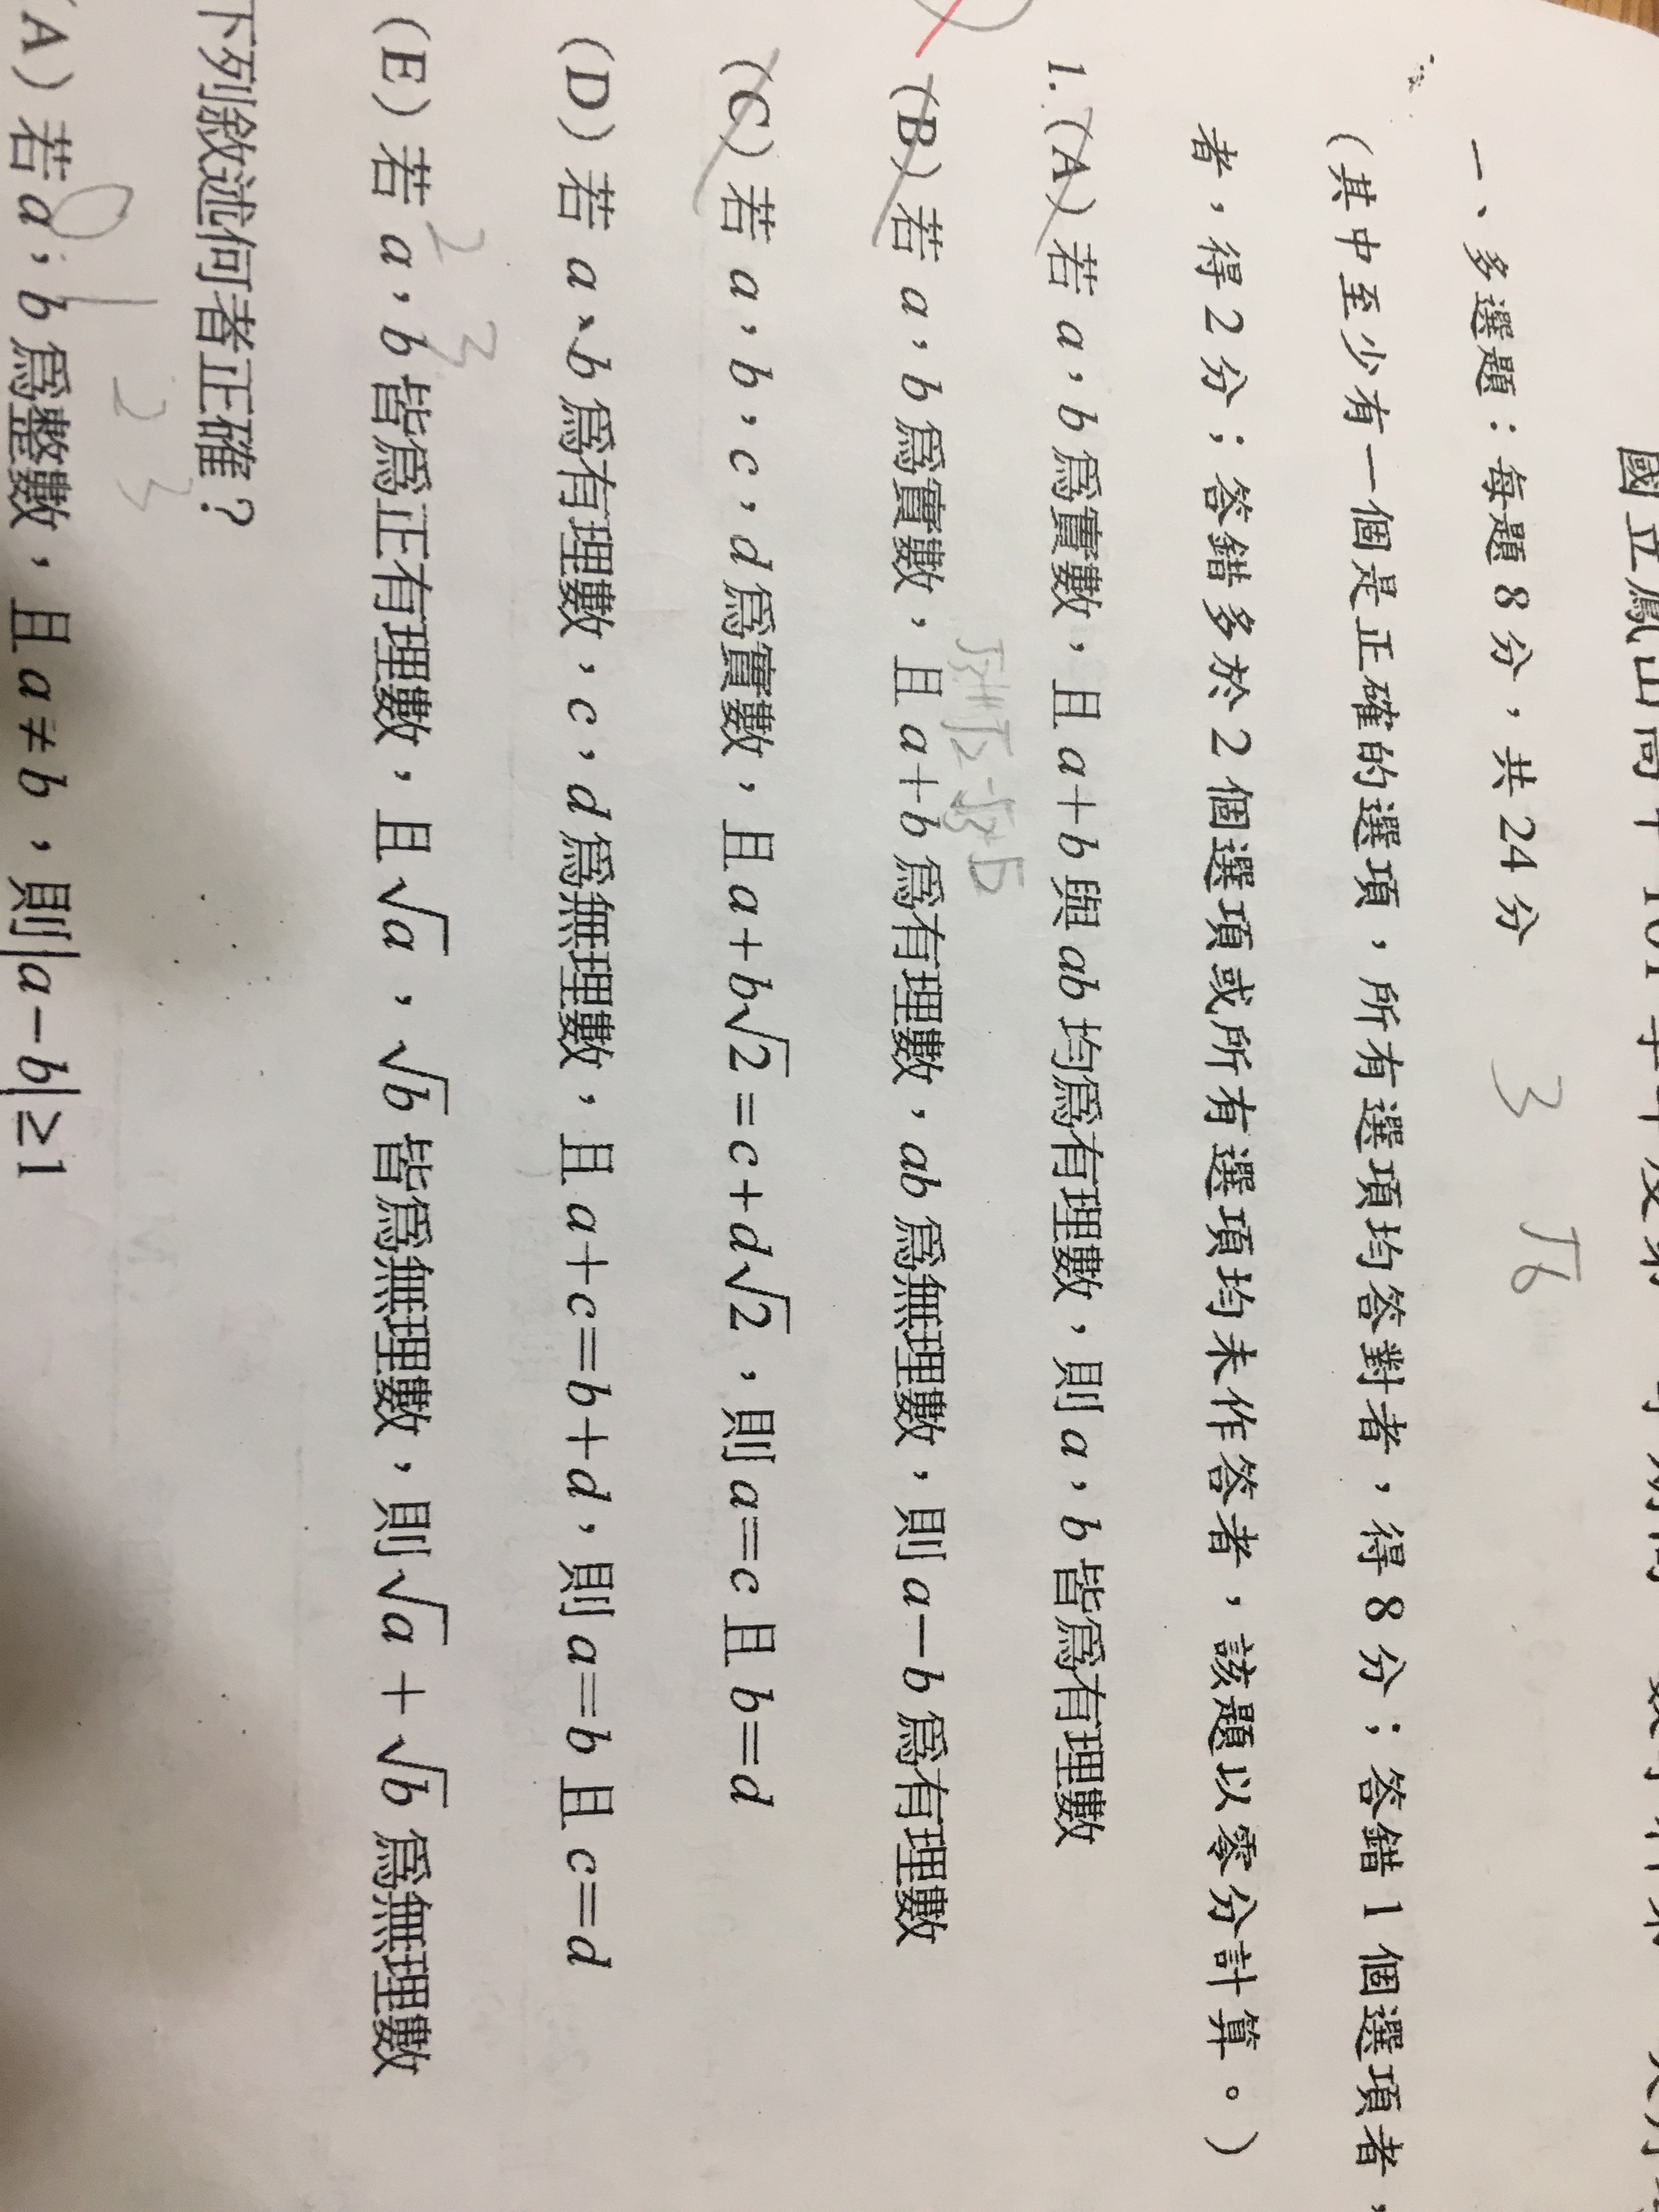 國立鳳山高中 101 學年度第
一、多選題：每題 8 分，共 24 分 3 √6
（其中至少有一個是正確的選項，所有選項均答對者，得 8 分；答錯 1 個選項者，
者，得 2 分；答錯多於 2 個選項或所有選項均未作答者，該題以零分計算。）
1. (A) 若 a，b 爲實數，且 a+b 與 ab 均爲有理數，則 a，b 皆爲有理數
(B) 若 a，b 爲實數，且 a+b 爲有理數，ab 爲無理數，則 a−b 爲有理數
(C) 若 a，b，c，d 爲實數，且 a+b√2=c+d√2，則 a=c 且 b=d
(D) 若 a、b 爲有理數，c，d 爲無理數，且 a+c=b+d，則 a=b 且 c=d
2 3
(E) 若 a，b 皆爲正有理數，且 √a，√b 皆爲無理數，則 √a+√b 爲無理數
下列敘述何者正確？
0 1 2 3
(A) 若 a，b 爲整數，且 a≠b，則|a−b|≥1